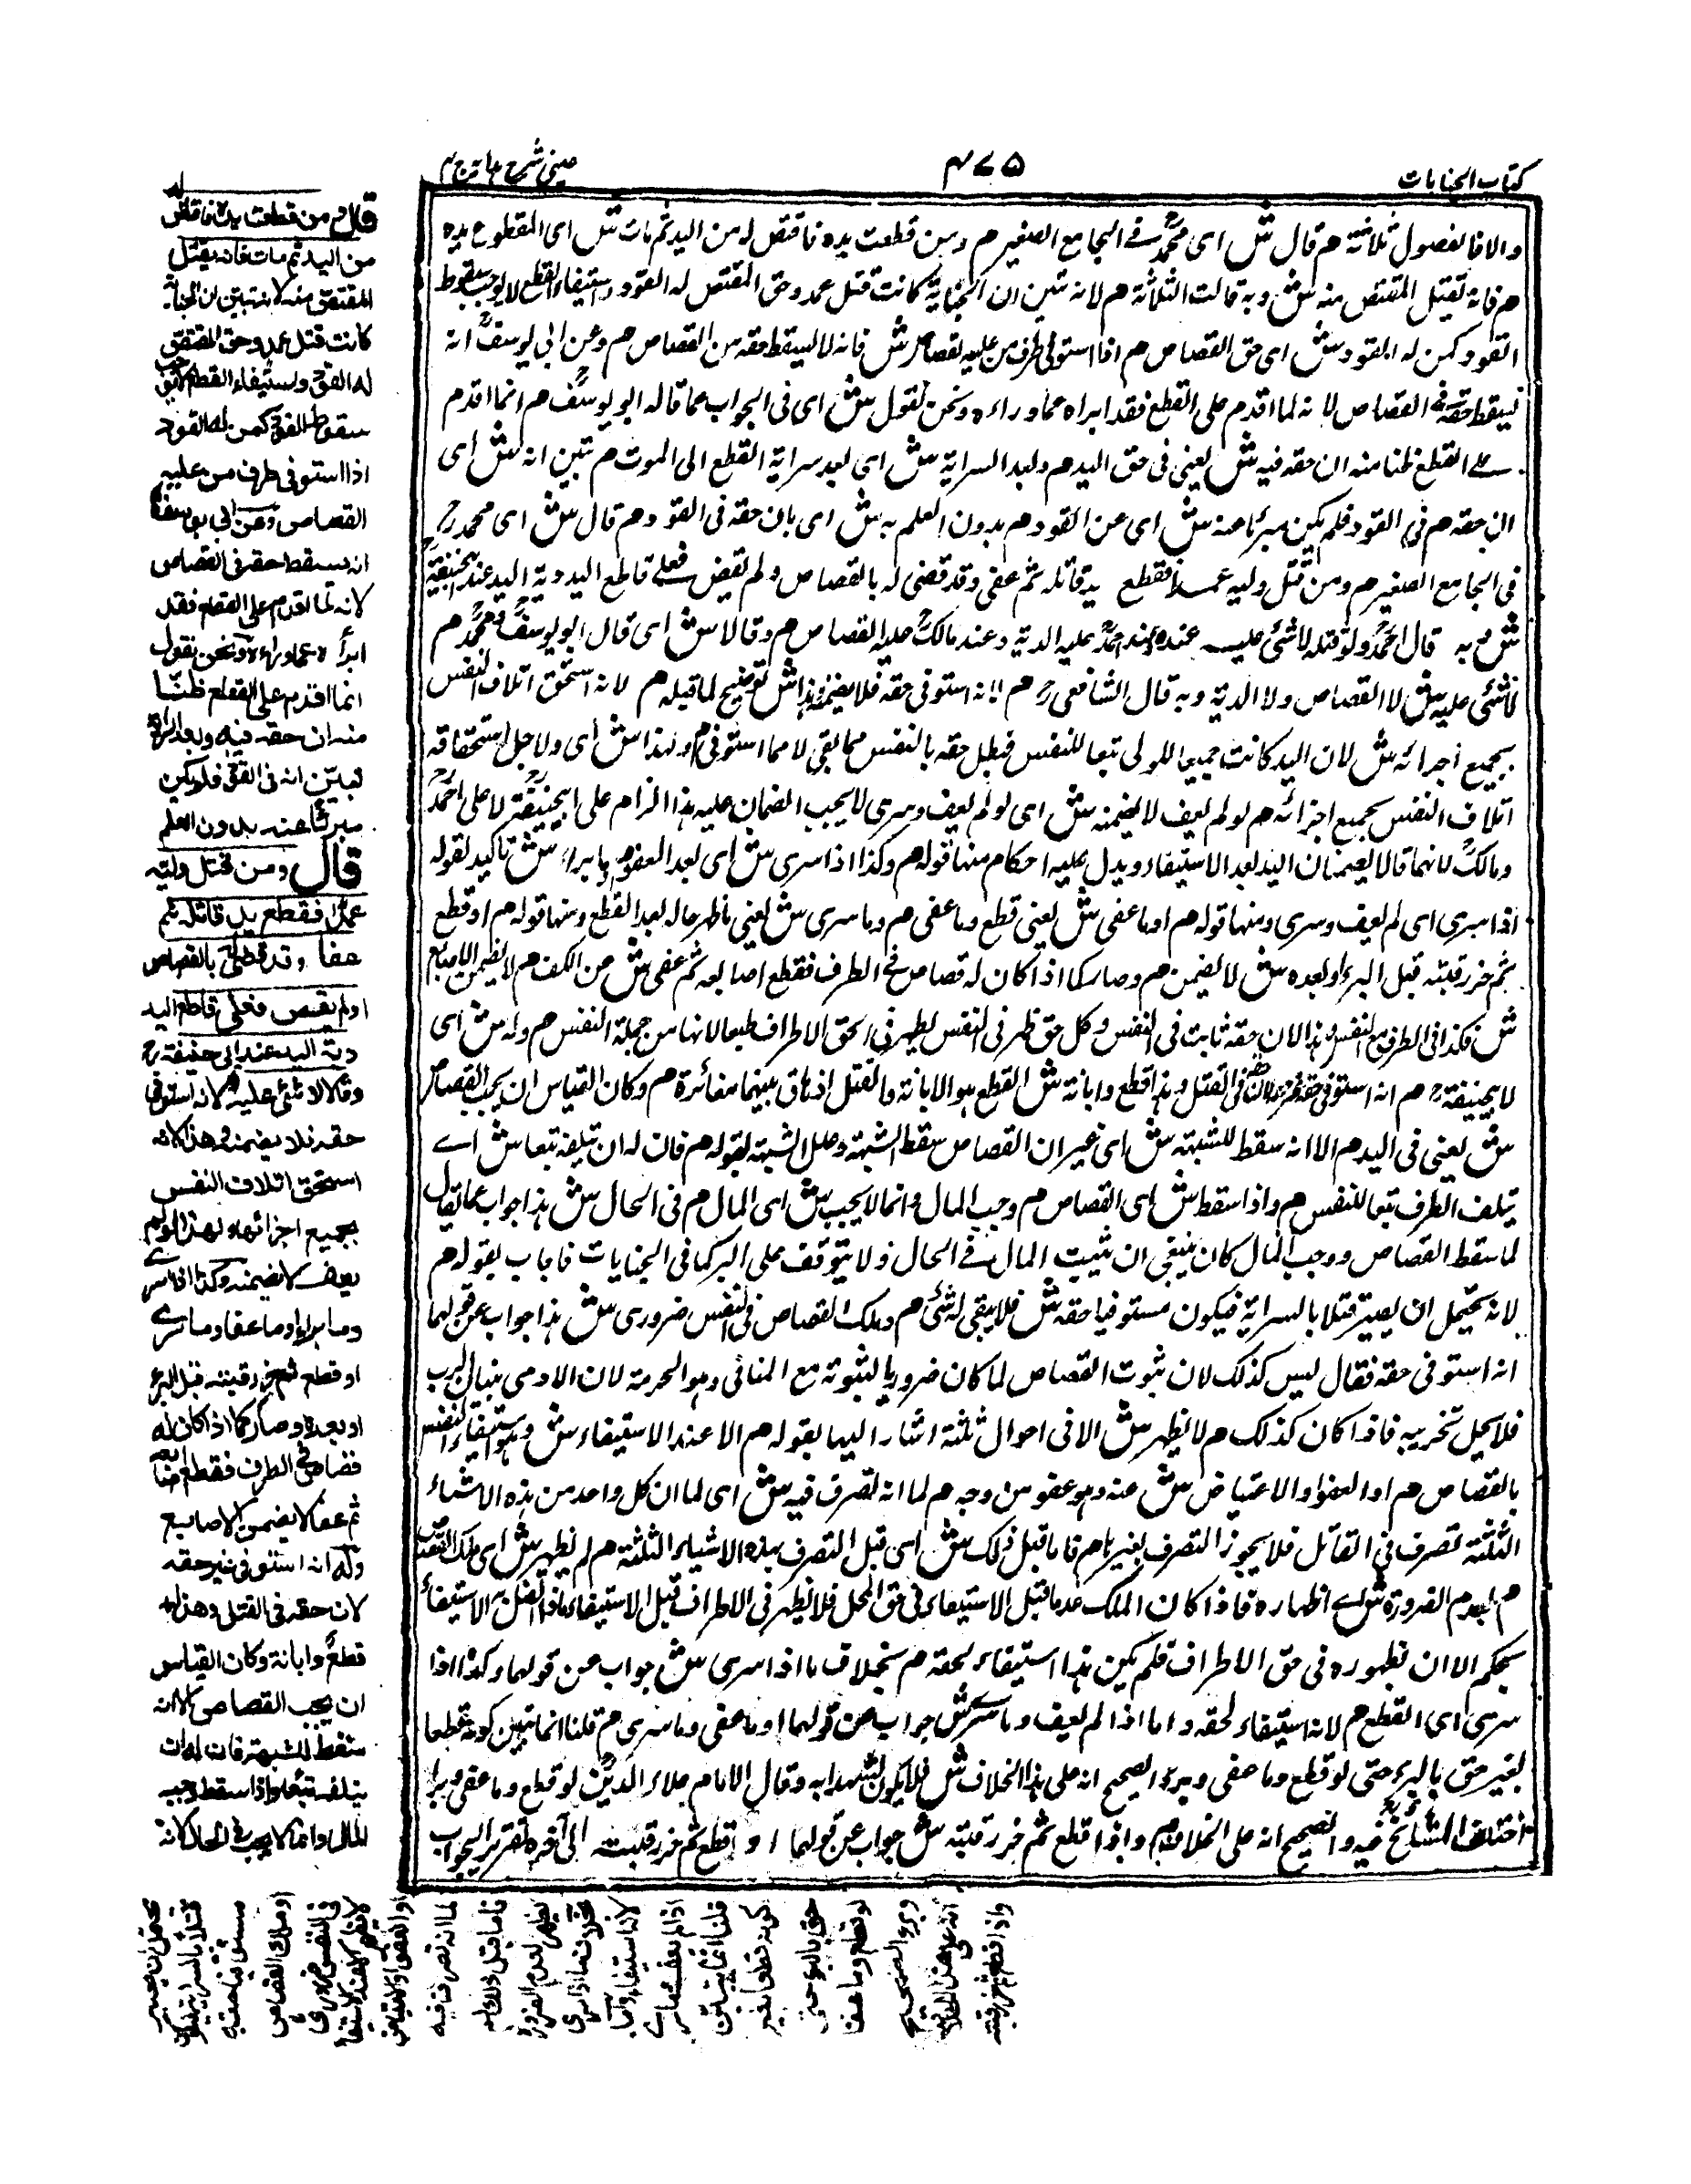 كتاب الجنايات
٤٧٥
عينى شرح هداية ج ٤
والا فالفصول ثلاثة هم قال ش اى محمدؒ فى الجامع الصغير هم ومن قطعت يده فاقتص له من اليد ثم مات ش اى المقطوع يده
هم فانه يقتل المقتص منه ش وبه قالت الثلاثة هم لانه تبين ان الجناية كانت قتل عمد وحق المقتص له القود واستيفاء القطع لا يوجب سقوط
القود كمن له القود ش اى حق القصاص هم اذا استوفى طرف من عليه القصاص ش فانه لا يسقط حقه من القصاص هم وعن ابى يوسفؒ انه
يسقط حقه فى القصاص لانه لما اقدم على القطع فقد ابراه عما وراءه ونحن نقول ش اى فى الجواب عما قاله ابو يوسفؒ هم انما اقدم
على القطع ظنا منه ان حقه فيه ش يعنى فى حق اليد هم وبعد السراية ش اى بعد سراية القطع الى الموت هم تبين انه ش اى
ان حقه هم فى القود فلم يكن مبرئا عنه ش اى عن القود هم بدون العلم به ش اى بان حقه فى القود هم قال ش اى محمدؒ
فى الجامع الصغير هم ومن قتل وليه عمدا فقطع يد قاتله ثم عفى وقد قضى له بالقصاص ولم يقض فعلى قاطع اليد دية اليد عند ابى حنيفة
ش وبه قال احمدؒ ولو قتله لا شئ عليه عنده وعند احمدؒ عليه الدية وعند مالكؒ عليه القصاص هم وقالا ش اى قال ابو يوسفؒ ومحمدؒ هم
لا شئ عليه ش لا القصاص ولا الدية وبه قال الشافعىؒ هم لانه استوفى حقه فلا يضمنه وهذا ش توضيح لما قبله هم لانه استحق اتلاف النفس
بجميع اجزائه ش لان اليد كانت جميعا للولى تبعا للنفس فبطل حقه بالنفس مما بقى لا مما استوفى هم ولهذا ش اى ولاجل استحقاقه
اتلاف النفس بجميع اجزائه هم لو لم يعف لا يضمنه ش اى لو لم يعف وسرى لا يجب الضمان عليه هذا الزام على ابى حنيفةؒ لا على احمدؒ
ومالكؒ لانهما قالا يضمنان اليد بعد الاستيفاء ويدل عليه احكام منها قوله هم وكذا اذا سرى ش اى بعد العفو هم وما برء ش تاكيد لقوله
اذا سرى اى لم يعف وسرى ومنها قوله هم او ما عفى ش يعنى قطع وما عفى هم وما سرى ش يعنى ما ظهر حاله بعد القطع ومنها قوله هم او قطع
ثم حز رقبته قبل البرء او بعده ش لا يضمن هم وصار كما اذا كان له قصاص فى الطرف فقطع اصابعه ثم عفى ش عن الكف هم لا يضمن الاصابع
ش فكذا فى الطرف مع النفس وهذا لان حقه ثابت فى النفس وكل حق ظهر فى النفس يظهر فى الحق الاطراف طبعا لانها من جملة النفس هم وله ش اى
لابى حنيفةؒ هم انه استوفى غير حقه لان حقه فى القتل وهذا قطع وابانة ش القطع هو الابانة والقتل ازهاق بينهما مغائرة هم وكان القياس ان يجب القصاص
ش يعنى فى اليد هم الا انه سقط للشبهة ش اى غير ان القصاص سقط للشبهة وعلل الشبهة بقوله هم فان له ان يتلفه تبعا ش اى
يتلف الطرف تبعا للنفس هم واذا سقط ش اى القصاص هم وجب المال وانما لا يجب ش اى المال هم فى الحال ش هذا جواب عما يقال
لما سقط القصاص ووجب المال كان ينبغى ان يثبت المال فى الحال ولا يتوقف على البرء كما فى الجنايات فاجاب بقوله هم
لانه يحتمل ان يصير قتلا بالسراية فيكون مستوفيا حقه ش فلا يبقى له شئ هم وملك القصاص فى النفس ضرورى ش هذا جواب عن قولهما
انه استوفى حقه فقال ليس كذلك لان ثبوت القصاص لما كان ضروريا لثبوته مع المنافى وهو الحرمة لان الادمى بنيان الرب
فلا يحل تخريبه فاذا كان كذلك هم لا يظهر ش الا فى احوال ثلثة اشار اليها بقوله هم الا عند الاستيفاء ش وهو استيفاء النفس
بالقصاص هم او العفو او الاعتياض ش عنه وهو عفو من وجه هم لما انه تصرف فيه ش اى لما ان كل واحد من هذه الاشياء
الثلثة تصرف فى القاتل فلا يجوز التصرف بغيرها هم فاما قبل ذلك ش اى قبل التصرف بهذه الاشياء الثلثة هم لم يظهر ش اى ملك القصاص
هم لعدم الضرورة ش اى اظهاره فاذا كان الملك عدما قبل الاستيفاء فى حق المحل فلا يظهر فى الاطراف قبل الاستيفاء فاذا الاستيفاء
بحكم الا ان ظهوره فى حق الاطراف فلم يكن هذا استيفاء لحقه هم بخلاف ما اذا سرى ش جواب عن قولهما وكذا اذا
سرى اى القطع هم لانه استيفاء لحقه واما اذا لم يعف وما سرى ش جواب عن قولهما او ما عفى وما سرى هم قلنا انما يتبين كونه قطعا
بغير حق بالبرء حتى لو قطع وما عفى وبرء الصحيح انه على هذا الخلاف ش فلا يكون لتشهد به وقال الامام علاء الدينؒ لو قطع وما عفى وبرء
اختلف المشايخ فيه والصحيح انه على الخلاف هم واذا قطع ثم حز رقبته ش جواب عن قولهما او قطع ثم حز رقبته الى آخره تقرير الجواب
قال ومن قطعت يده فاقتص له
من اليد ثم مات فانه يقتل
المقتص منه لانه تبين ان الجناية
كانت قتل عمد وحق المقتص
له القود واستيفاء القطع لا يوجب
سقوط القود كمن له القود
اذا استوفى طرف من عليه
القصاص وعن ابى يوسفؒ
انه يسقط حقه فى القصاص
لانه لما اقدم على القطع فقد
ابرأه عما وراءه ونحن نقول
انما اقدم على القطع ظنا
منه ان حقه فيه وبعد السراية
تبين انه فى القود فلم يكن
مبرئا عنه بدون العلم
قال ومن قتل وليه
عمدا فقطع يد قاتله ثم
عفا وقد قضى له بالقصاص
او لم يقض فعلى قاطع اليد
دية اليد عند ابى حنيفةؒ
وقالا لا شئ عليه لانه استوفى
حقه فلا يضمنه وهذا لانه
استحق اتلاف النفس
بجميع اجزائها ولهذا لو لم
يعف لا يضمنه وكذا اذا سرى
وما برأ او ما عفا وما سرى
او قطع ثم حز رقبته قبل البرء
او بعده وصار كما اذا كان له
قصاص فى الطرف فقطع اصابعه
ثم عفا لا يضمن الاصابع
وله انه استوفى غير حقه
لان حقه فى القتل وهذا
قطع وابانة وكان القياس
ان يجب القصاص الا انه
سقط للشبهة فان له ان
يتلفه تبعا واذا سقط وجب
المال وانما لا يجب فى الحال لانه
يحتمل ان يصير
قتلا بالسراية فيكون
مستوفيا حقه
وملك القصاص
فى النفس ضرورى
لا يظهر الا عند الاستيفاء
او العفو او الاعتياض
لما انه تصرف فيه
فاما قبل ذلك لم
يظهر لعدم الضرورة
بخلاف ما اذا سرى
لانه استيفاء واما
اذا لم يعف وما سرى
قلنا انما يتبين
كونه قطعا بغير
حق بالبرء حتى
لو قطع وما عفا
وبرء الصحيح
انه على هذا الخلاف
واذا قطع ثم حز رقبته